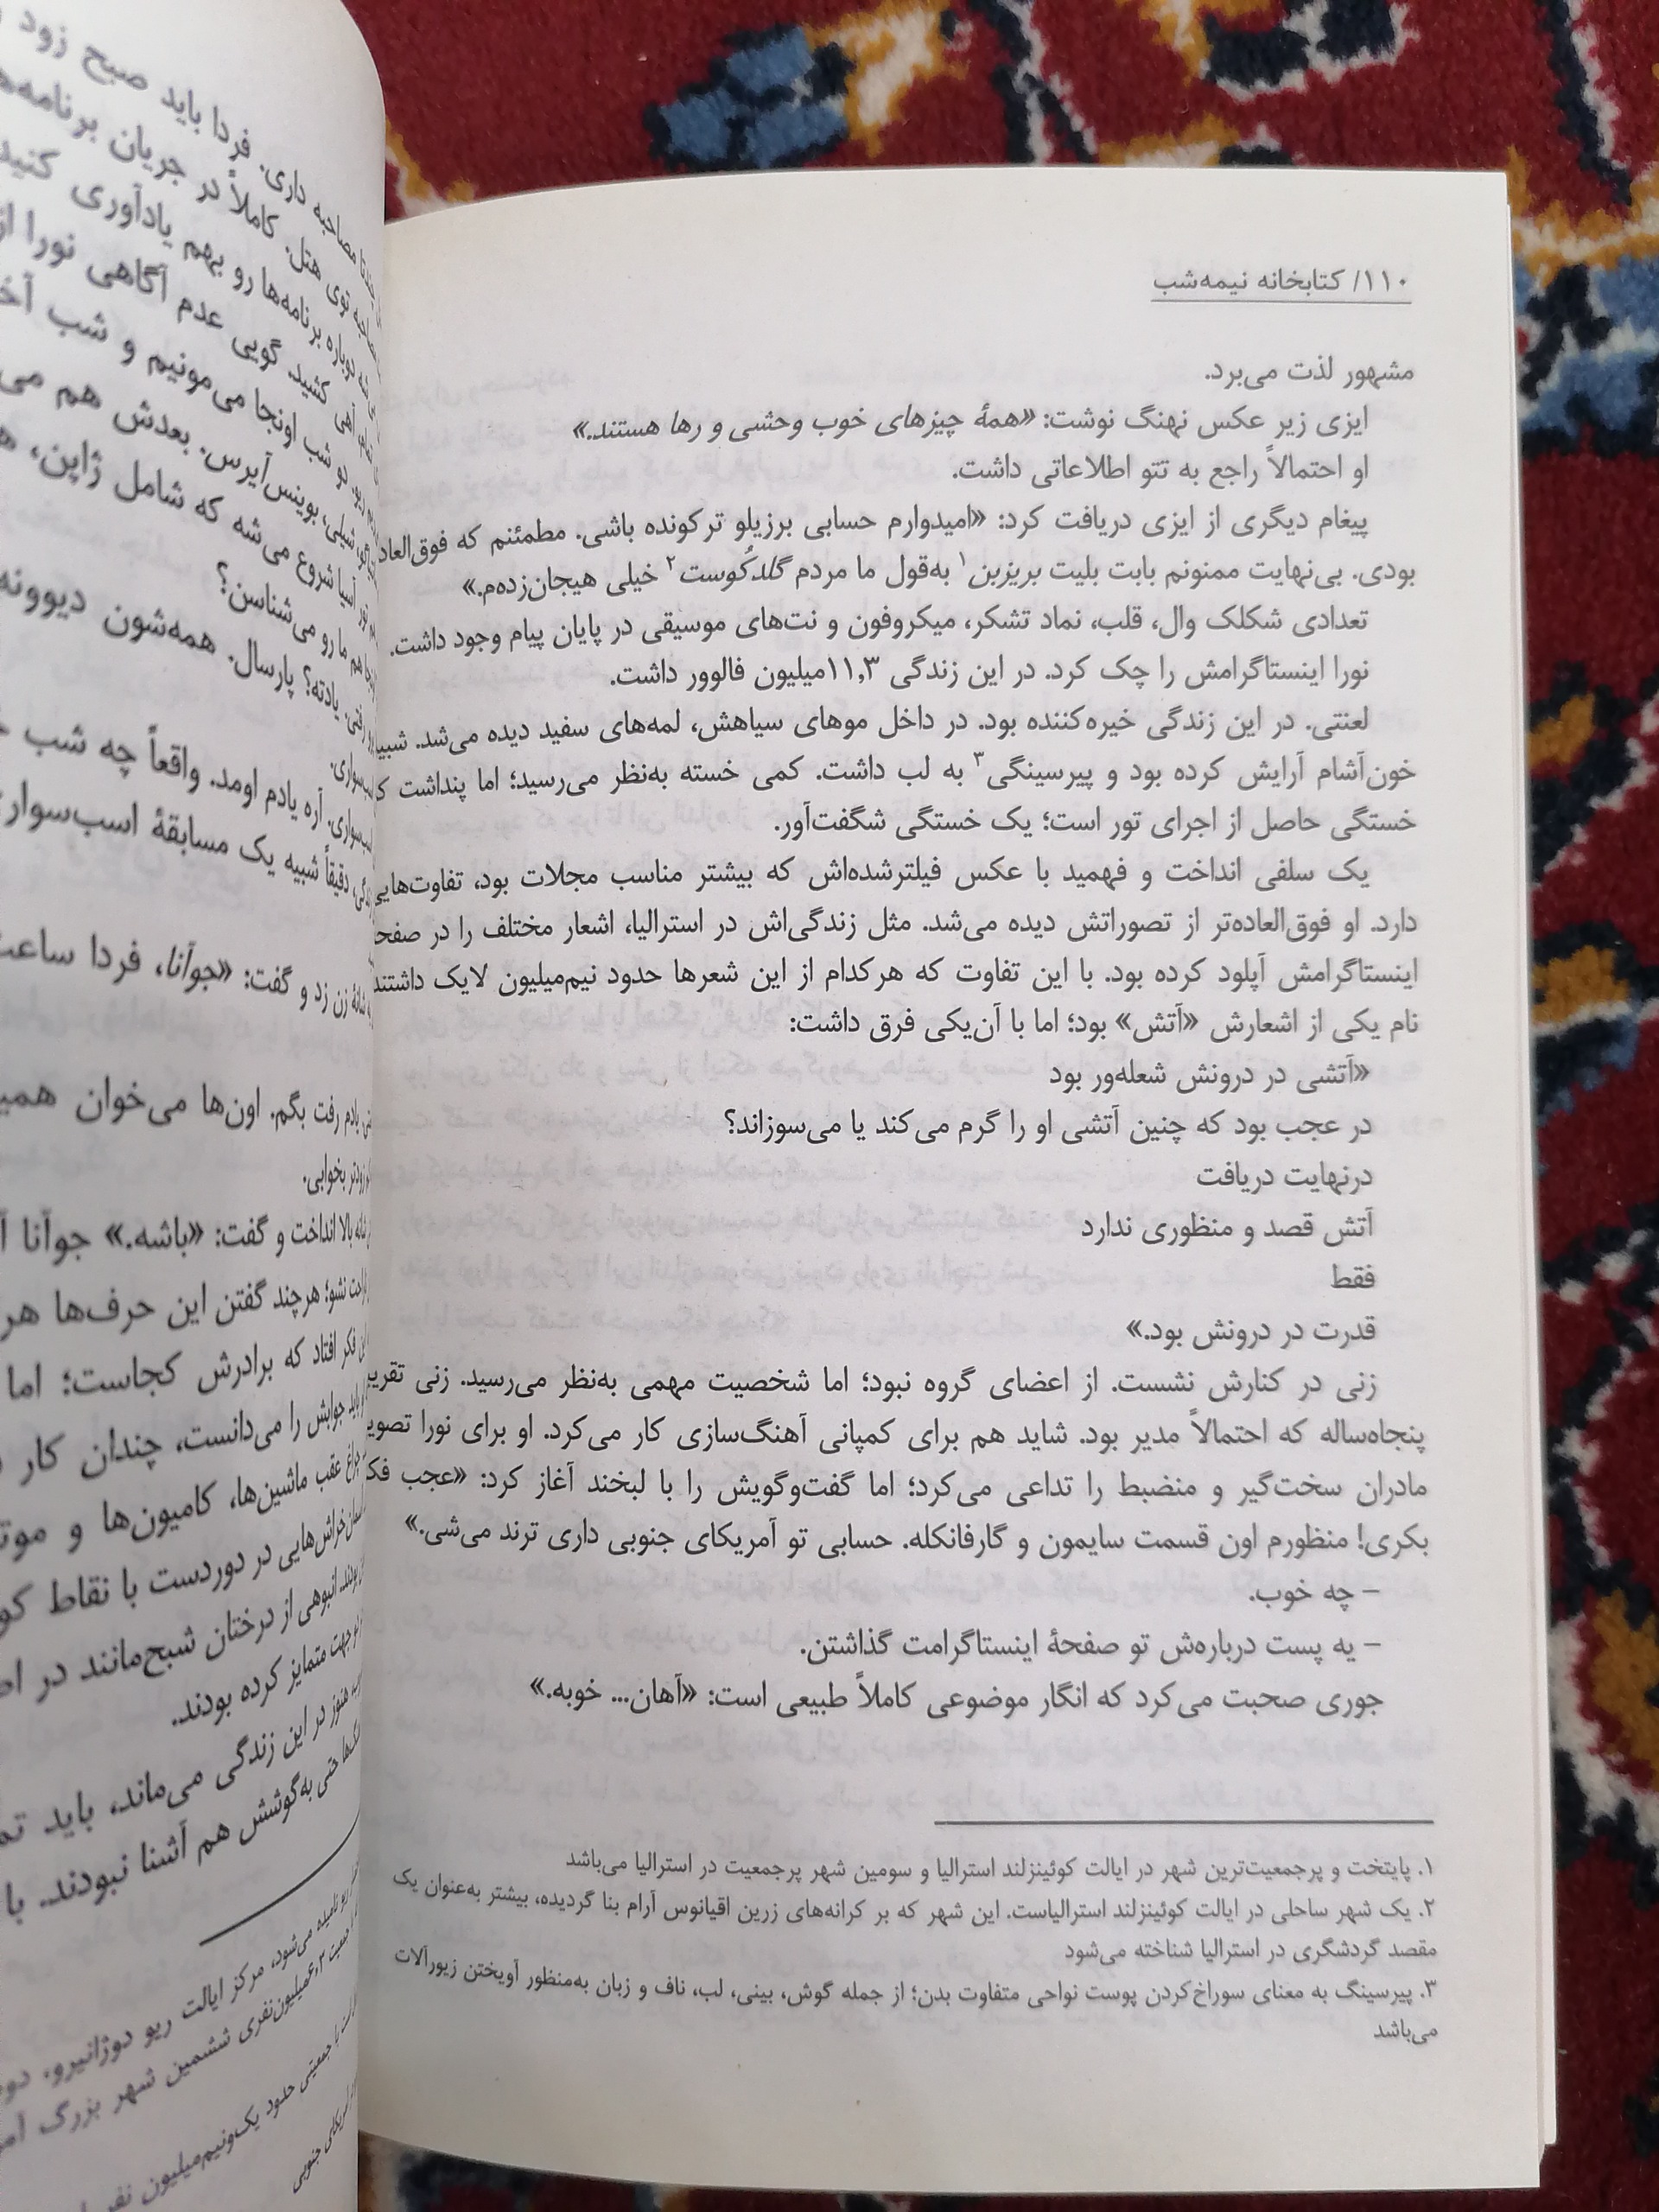 ۱۱۰/ کتابخانه نیمه‌شب
مشهور لذت می‌برد.
ایزی زیر عکس نهنگ نوشت: «همهٔ چیزهای خوب وحشی و رها هستند.»
او احتمالاً راجع به تتو اطلاعاتی داشت.
پیغام دیگری از ایزی دریافت کرد: «امیدوارم حسابی برزیلو ترکونده باشی. مطمئنم که
بودی. بی‌نهایت ممنونم بابت بلیت بریزبن۱ به‌قول ما مردم گلدکُوست۲ خیلی هیجان‌زده‌م.»
تعدادی شکلک وال، قلب، نماد تشکر، میکروفون و نت‌های موسیقی در پایان پیام وجود داشت.
نورا اینستاگرامش را چک کرد. در این زندگی ۱۱,۳میلیون فالوور داشت.
لعنتی. در این زندگی خیره‌کننده بود. در داخل موهای سیاهش، لمه‌های سفید دیده می‌شد. شبیه
خون‌آشام آرایش کرده بود و پیرسینگی۳ به لب داشت. کمی خسته به‌نظر می‌رسید؛ اما پنداشت
خستگی حاصل از اجرای تور است؛ یک خستگی شگفت‌آور.
یک سلفی انداخت و فهمید با عکس فیلترشده‌اش که بیشتر مناسب مجلات بود، تفاوت‌هایی
دارد. او فوق‌العاده‌تر از تصوراتش دیده می‌شد. مثل زندگی‌اش در استرالیا، اشعار مختلف را در
اینستاگرامش آپلود کرده بود. با این تفاوت که هرکدام از این شعرها حدود نیم‌میلیون لایک داشتند
نام یکی از اشعارش «آتش» بود؛ اما با آن‌یکی فرق داشت:
«آتشی در درونش شعله‌ور بود
در عجب بود که چنین آتشی او را گرم می‌کند یا می‌سوزاند؟
درنهایت دریافت
آتش قصد و منظوری ندارد
فقط
قدرت در درونش بود.»
زنی در کنارش نشست. از اعضای گروه نبود؛ اما شخصیت مهمی به‌نظر می‌رسید. زنی
پنجاه‌ساله که احتمالاً مدیر بود. شاید هم برای کمپانی آهنگ‌سازی کار می‌کرد. او برای نورا
مادران سخت‌گیر و منضبط را تداعی می‌کرد؛ اما گفت‌وگویش را با لبخند آغاز کرد: «عجب
بکری! منظورم اون قسمت سایمون و گارفانکله. حسابی تو آمریکای جنوبی داری ترند می‌شی.»
– چه خوب.
– یه پست درباره‌ش تو صفحهٔ اینستاگرامت گذاشتن.
جوری صحبت می‌کرد که انگار موضوعی کاملاً طبیعی است: «آهان... خوبه.»
۱. پایتخت و پرجمعیت‌ترین شهر در ایالت کوئینزلند استرالیا و سومین شهر پرجمعیت در استرالیا می‌باشد
۲. یک شهر ساحلی در ایالت کوئینزلند استرالیاست. این شهر که بر کرانه‌های زرین اقیانوس آرام بنا گردیده، بیشتر به‌عنوان یک
مقصد گردشگری در استرالیا شناخته می‌شود
۳. پیرسینگ به معنای سوراخ‌کردن پوست نواحی متفاوت بدن؛ از جمله گوش، بینی، لب، ناف و زبان به‌منظور آویختن زیورآلات
می‌باشد
مصاحبه داری. فردا باید صبح زود
توی هتل. کاملاً در جریان
دوباره برنامه‌ها رو بهم یادآوری
آهی کشید. گویی عدم آگاهی نورا
دو شب اونجا می‌مونیم و شب
شیلی، بوینس‌آیرس. بعدش هم
آسیا شروع می‌شه که شامل ژاپن،
هم ما رو می‌شناسن؟
رفتی. یادته؟ پارسال. همه‌شون
آره یادم اومد. واقعاً چه شب
دقیقاً شبیه یک مسابقهٔ
زن زد و گفت: «جوآنا، فردا
یادم رفت بگم. اون‌ها می‌خوان
زودتر بخوابی.
بالا انداخت و گفت: «باشه.» جوآنا
نشو؛ هرچند گفتن این حرف‌ها
فکر افتاد که برادرش کجاست؛ اما
باید جوابش را می‌دانست، چندان کار
چراغ عقب ماشین‌ها، کامیون‌ها و
در دوردست با نقاط
انبوهی از درختان شبح‌مانند در
جهت متمایز کرده بودند.
هنوز در این زندگی می‌ماند، باید
حتی به‌گوشش هم آشنا نبودند. با
نامیده می‌شود، مرکز ایالت ریو دوژانیرو،
ششمین شهر بزرگ
با جمعیتی حدود یک‌ونیم‌میلیون